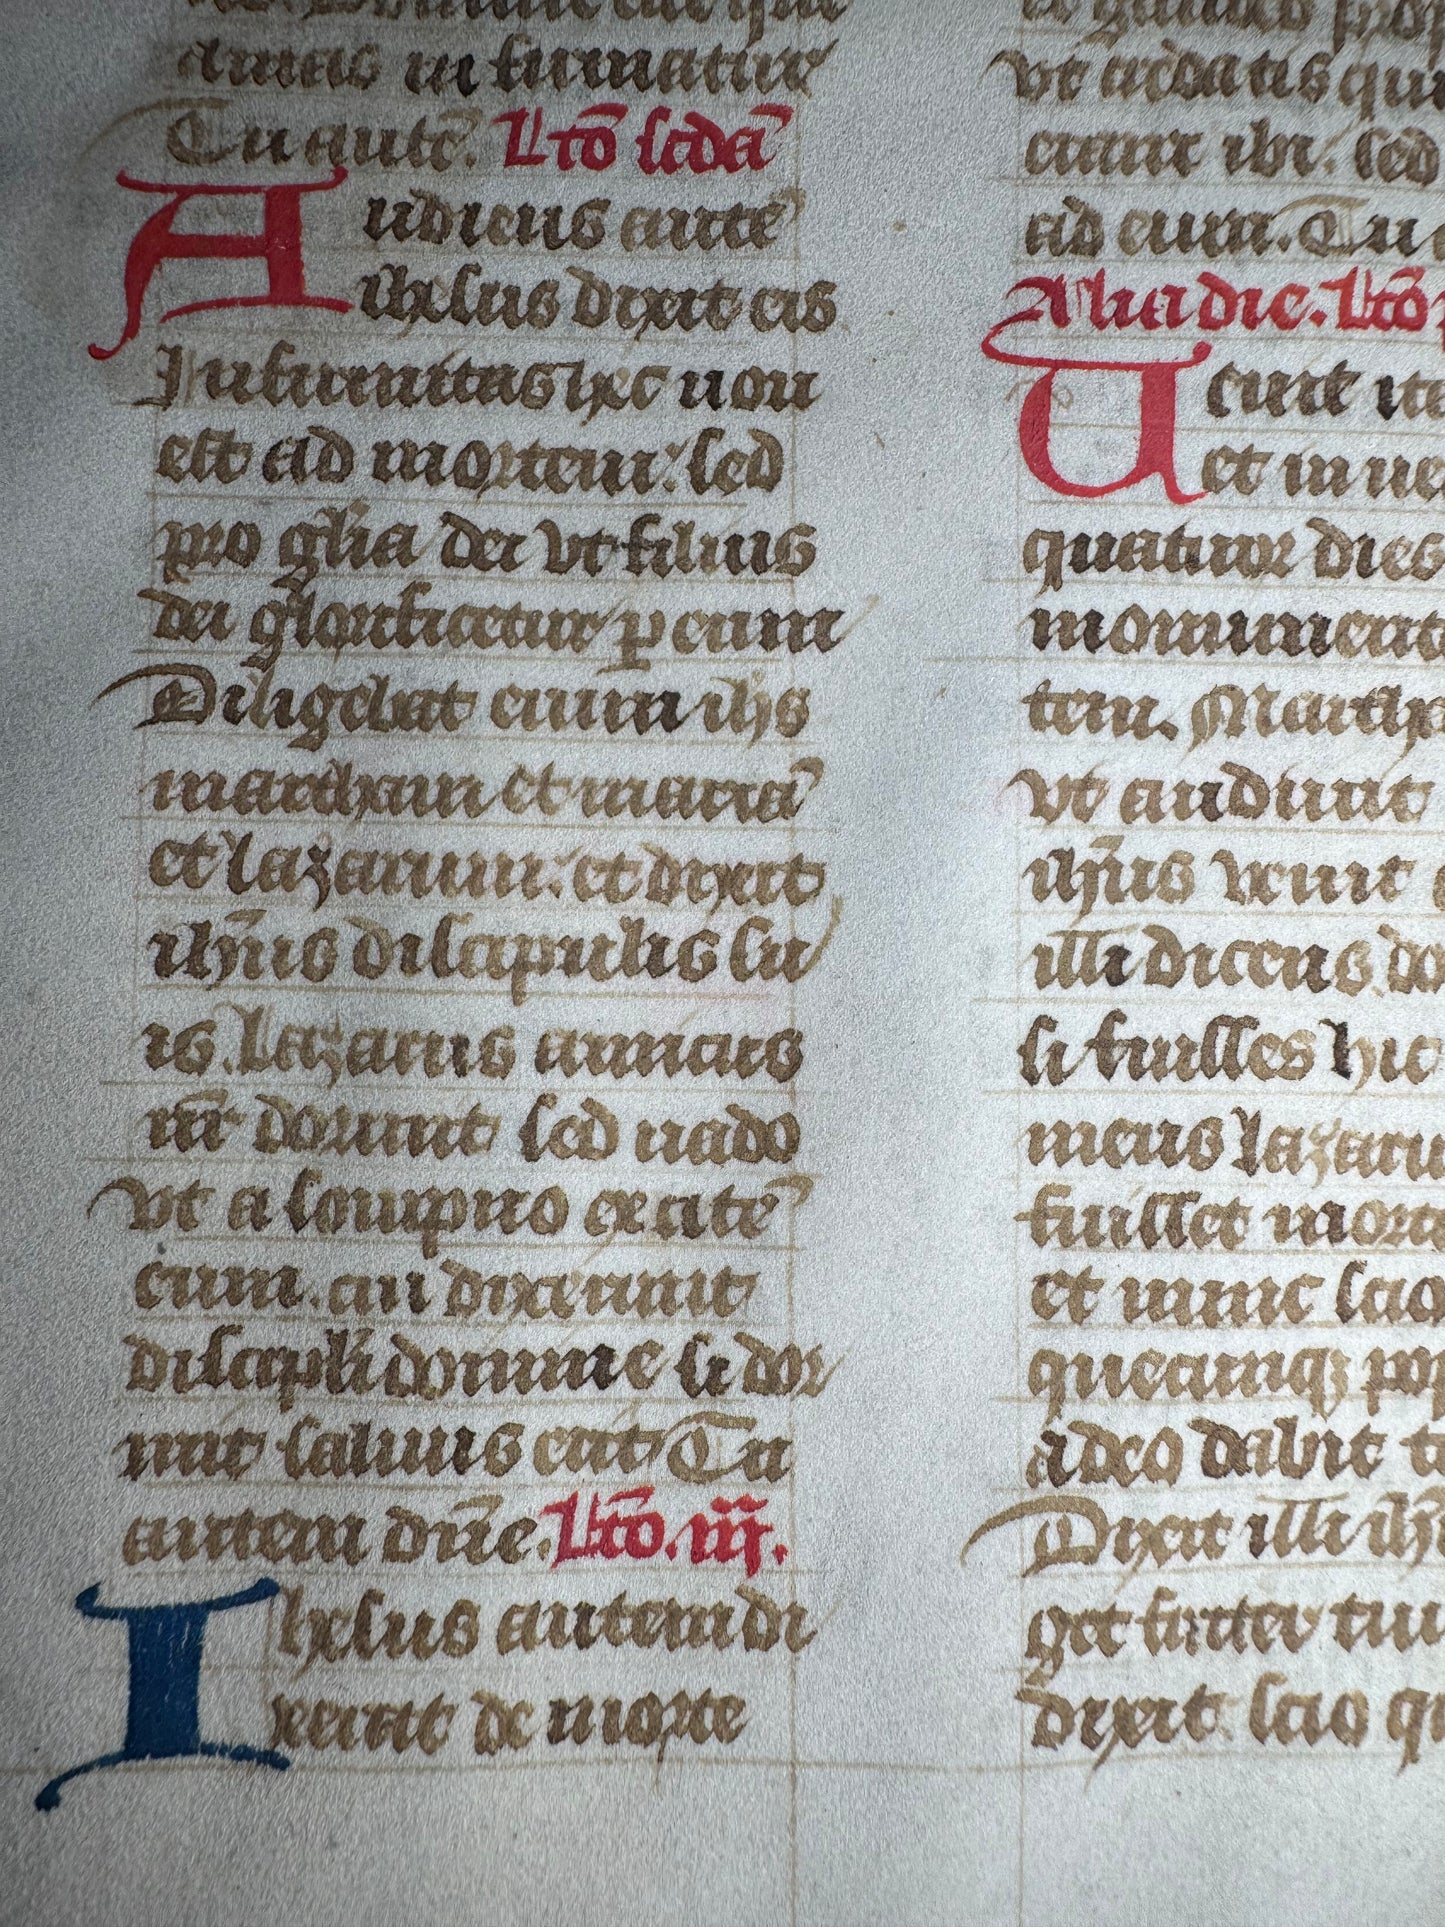 amas in firmatur
Tu aute᷃. Lc̄o scd̄a
Audiens autē
ihesus dixit eis
Infirmitas hec non
est ad mortem: sed
pro gl̄ia dei vt filius
dei glorificetur ꝑ eum
Diligebat eum ihs
martham et mariā
et lazarum. et dixit
ih̄us discipulis su
is. Lazarus amicus
nr̄ dormit sed uado
vt a sompno excitē
eum. an dixerunt
discipl̄i domine si dor
mit saluus erit Tu
autem dn̄e. Lc̄o. iij.
Ihesus autem di
xerat de morte
vt credatis qui
eram ibi. sed
ad eum. Tu
Alia die. Lc̄o
Uenit ite
et inue
quatuor dies
monument
tem. Marth
vt audiuit
ih̄us venit
illi dicens do
si fuisses hic
meus lazaru
fuisset mor
et nunc scio
quecumqꝫ po
a deo dabit t
Dixit illi ih̄
get frater tu
dixit scio q